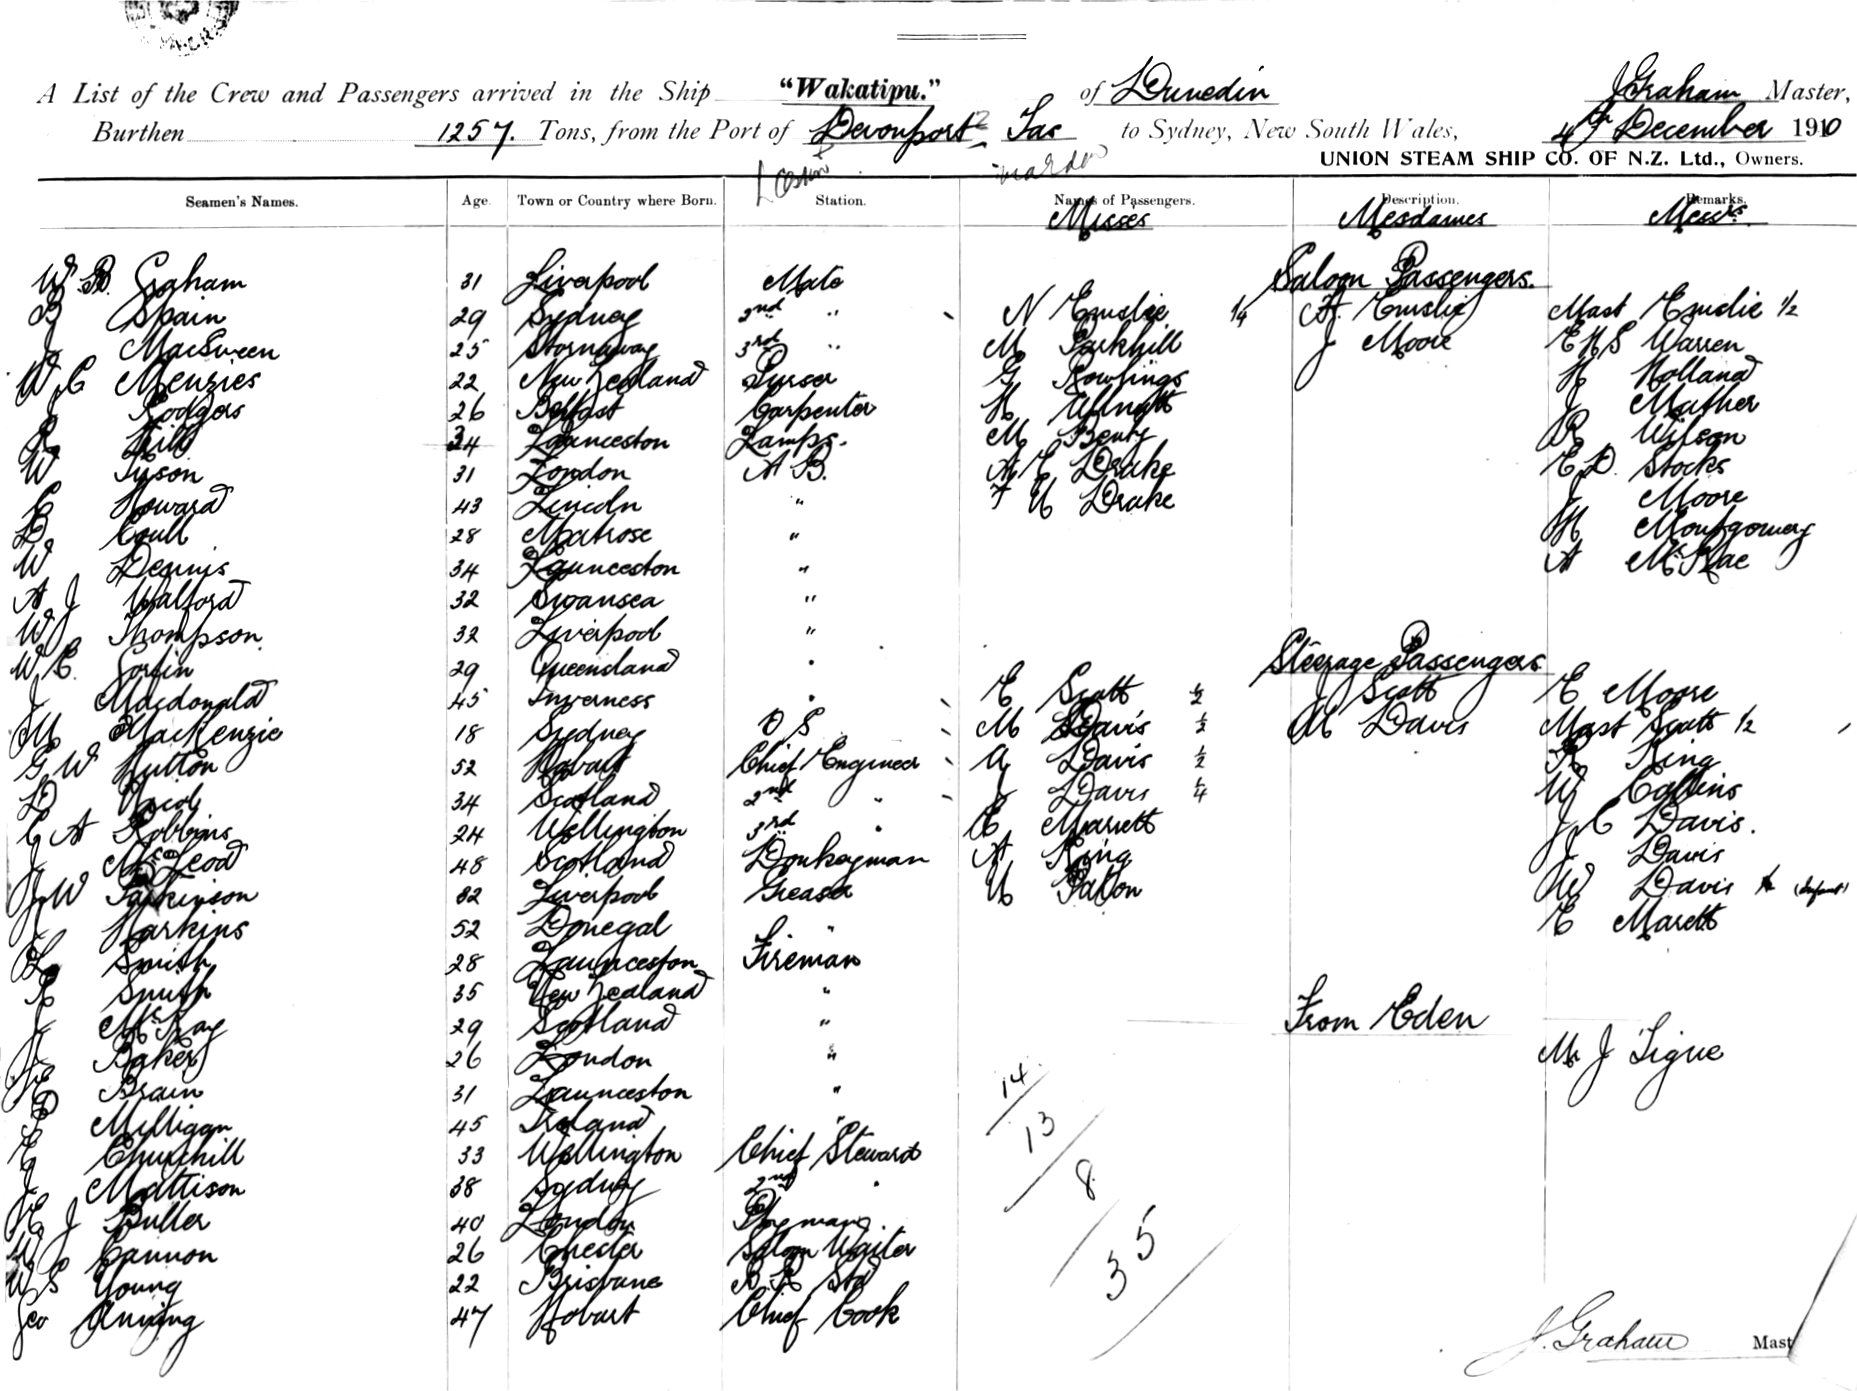 A List of the Crew and Passengers arrived in the Ship "Wakatipu." of Dunedin J Graham Master,
Burthen 1257. Tons, from the Port of Devonport Tas to Sydney, New South Wales, 4th December 1910
UNION STEAM SHIP CO. OF N.Z. Ltd., Owners.
Seamen's Names. Age. Town or Country where Born. Station. Names of Passengers. Description. Remarks.
Misses Mesdames Messrs.
Saloon Passengers.
W. B. Graham 31 Liverpool Mate
Spain 29 Sydney 2nd " N Emslie 1/4 A. Emslie Mast Emslie 1/2
J MacSween 25 Stornaway 3rd " M Parkhill J Moore E H S Warren
W C Menzies 22 New Zealand Purser G Rowlings H Holland
J Rodgers 26 Belfast Carpenter H Allnutt J Mather
R Hill 34 Launceston Lamps. M Beuty R Wilson
W Tyson 31 London A B. A E Drake E D. Stocks
C Howard 43 Lincoln " F U Drake J Moore
D Coull 28 Montrose " H Montgomery
W Dennis 34 Launceston " A McRae
A J Walford 32 Swansea "
W J Thompson 32 Liverpool "
Steerage Passengers
W C. Goslin 29 Queensland "
J Macdonald 45 Inverness " E Scott 1/2 J Scott E Moore
M MacKenzie 18 Sydney O S M Davis 1/2 M Davis Mast Scott 1/2
G W Hutton 52 Hobart Chief Engineer A Davis 1/2 R King
D Nicol 34 Scotland 2nd " J Davis 1/4 W Collins
C A Robbins 24 Wellington 3rd " E Marrett J C Davis.
J McLeod 48 Scotland Donkeyman A King J Davis
J W Parkinson 32 Liverpool Greaser U Patton W Davis (Infant)
J Harkins 52 Donegal " E Marett
L Smith 28 Launceston Fireman
R Smith 35 New Zealand "
From Eden
J McKay 29 Scotland "
Baker 26 London " Mr J Tigue
E Brain 31 Launceston " 14
P Milligan 45 Ireland " 13
E Churchill 33 Wellington Chief Steward 8
J Mattison 38 Sydney 2nd "
H J Butler 40 London
Cannon 26 Chester Saloon Waiter 35
W S Young 22 Brisbane B. R Std
Geo Anning 47 Hobart Chief Cook
J. Graham Mast